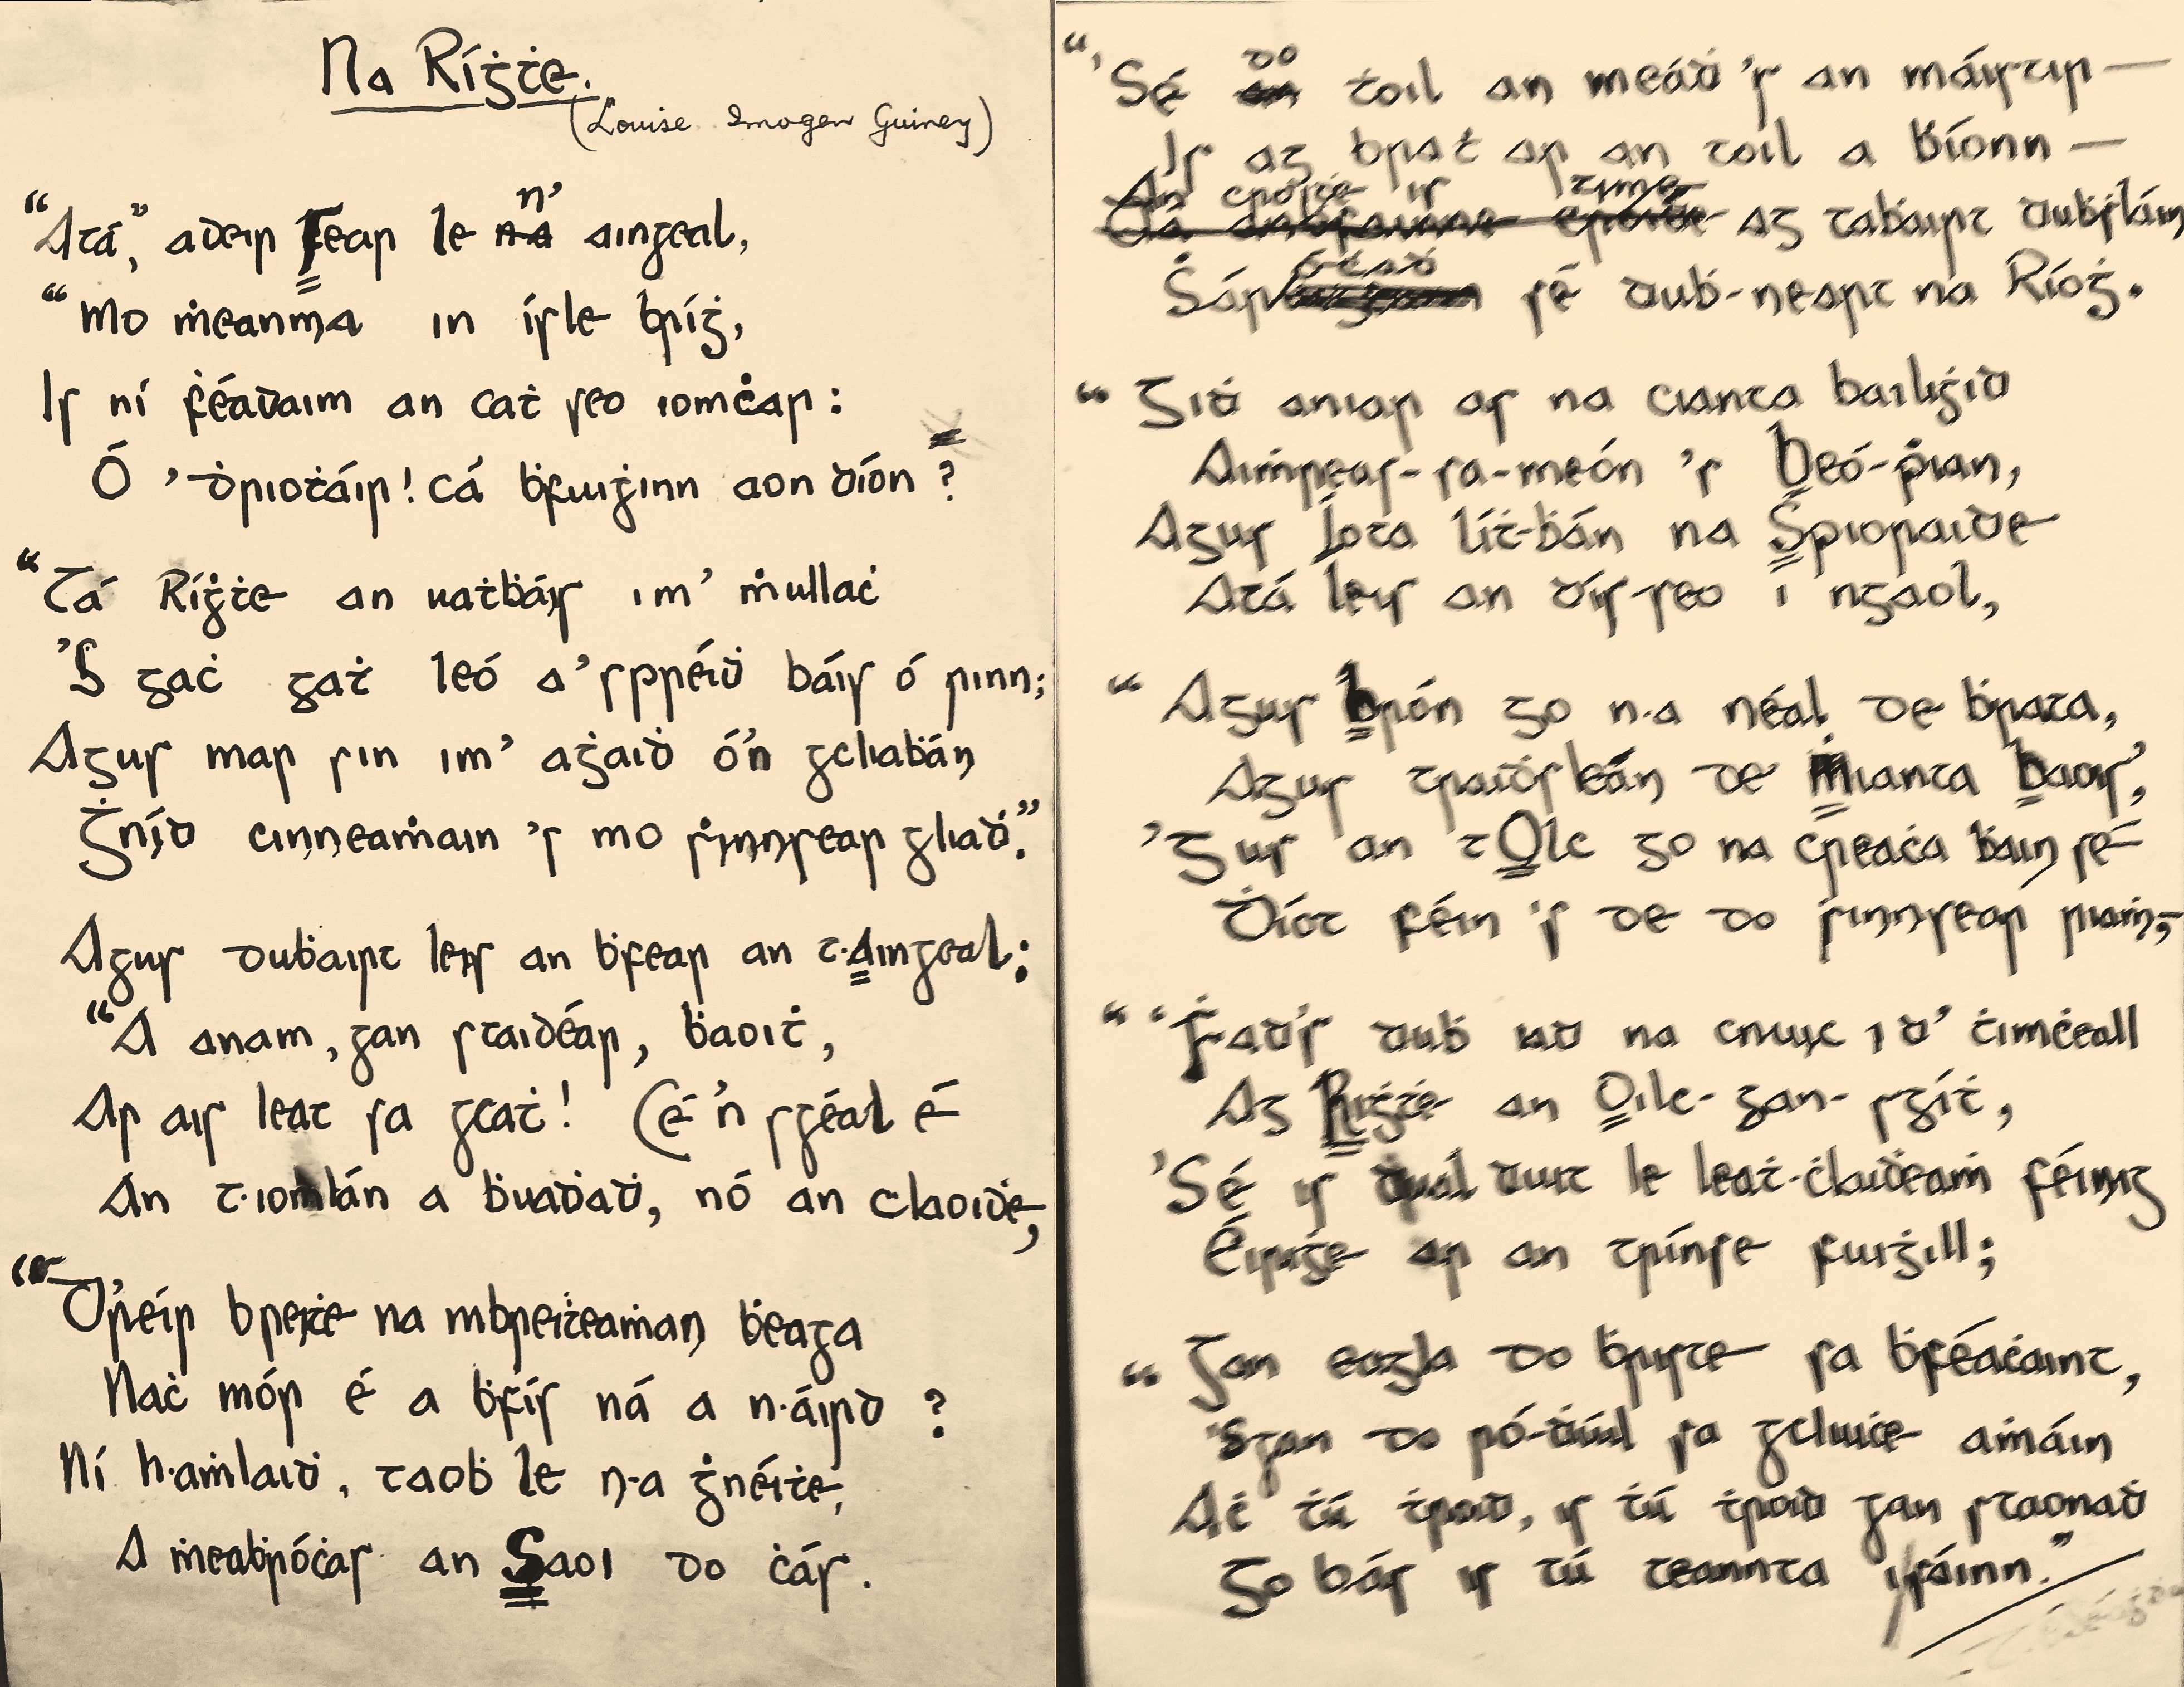 Na Ríġṫe.
(Louise Imogen Guiney)
“Atá”, adeir Fear le n’ aingeal,
“Mo ṁeanma in ísle bríġ,
Is ní ḟéadaim an caṫ seo iomċar:
Ó ’ḋrioṫáir! cá ḃfuiġinn aon díon?
“Tá Ríġṫe an uaṫḃáis im’ ṁullaċ
’S gaċ gaṫ leó a’ spréiḋ báis ó rinn;
Agus mar sin im’ aġaiḋ ó’n gcliaḃán
Ġníḋ cinneaṁain ’s mo ṡinnsear gliaḋ.”
Agus duḃairt leis an ḃfear an t-Aingeal:
“A anam, gan staidéar, ḃaoiṫ,
Ar ais leat sa gcaṫ! Cé ’n sgéal é
An t-iomlán a ḃuaḋaḋ, nó an claoiḋe,
“D’réir breiṫe na mbreiṫeaṁan ḃeaga
Naċ mór é a ḃfís ná a n-áird?
Ní h-aṁlaiḋ, taoḃ le n-a ġnéiṫe,
A ṁeaḃróċas an Saol do ċás.
“’Sé do ṫoil an meáḋ ’s an máirtir —
Is ag braṫ ar an toil a ḃíonn —
An croiḋe is time ag taḃairt duḃṡlán
Sáróċaḋ sé duḃ-neart na Ríoġ.
“Giḋ aniar as na cianta bailiġiḋ
Aimsreas-sa-meón ’s Beó-ṗian,
Agus Lota líṫ-ḃán na Spioraide
Atá leis an dís seo i ngaol,
“Agus Brón go n-a néal de ḃrata,
Agus traiḋsleán de ṁianta Baois,
’Gus an t-Olc go na creaċa ḃain sé
Díot féin ’s de do ṡinnsear riaṁ;
“‘Ḟaḋ’s duḃ iad na cnuic i d’ ṫimċeall
Ag Riġṫe an Oilc-gan-sgíṫ,
’Sé is dual duit le leaṫ-ċlaiḋeaṁ féiniġ
Éiriġe ar an trínse fuiġill;
“Gan eagla do ḃriste sa ḃféaċaint,
’Sgan do ró-ḋúil sa gcluiċe aṁáin
Aċ ṫú ṫroid, is ṫú ṫroid gan staonaḋ
Go bás is tú teannta i sáinn.”